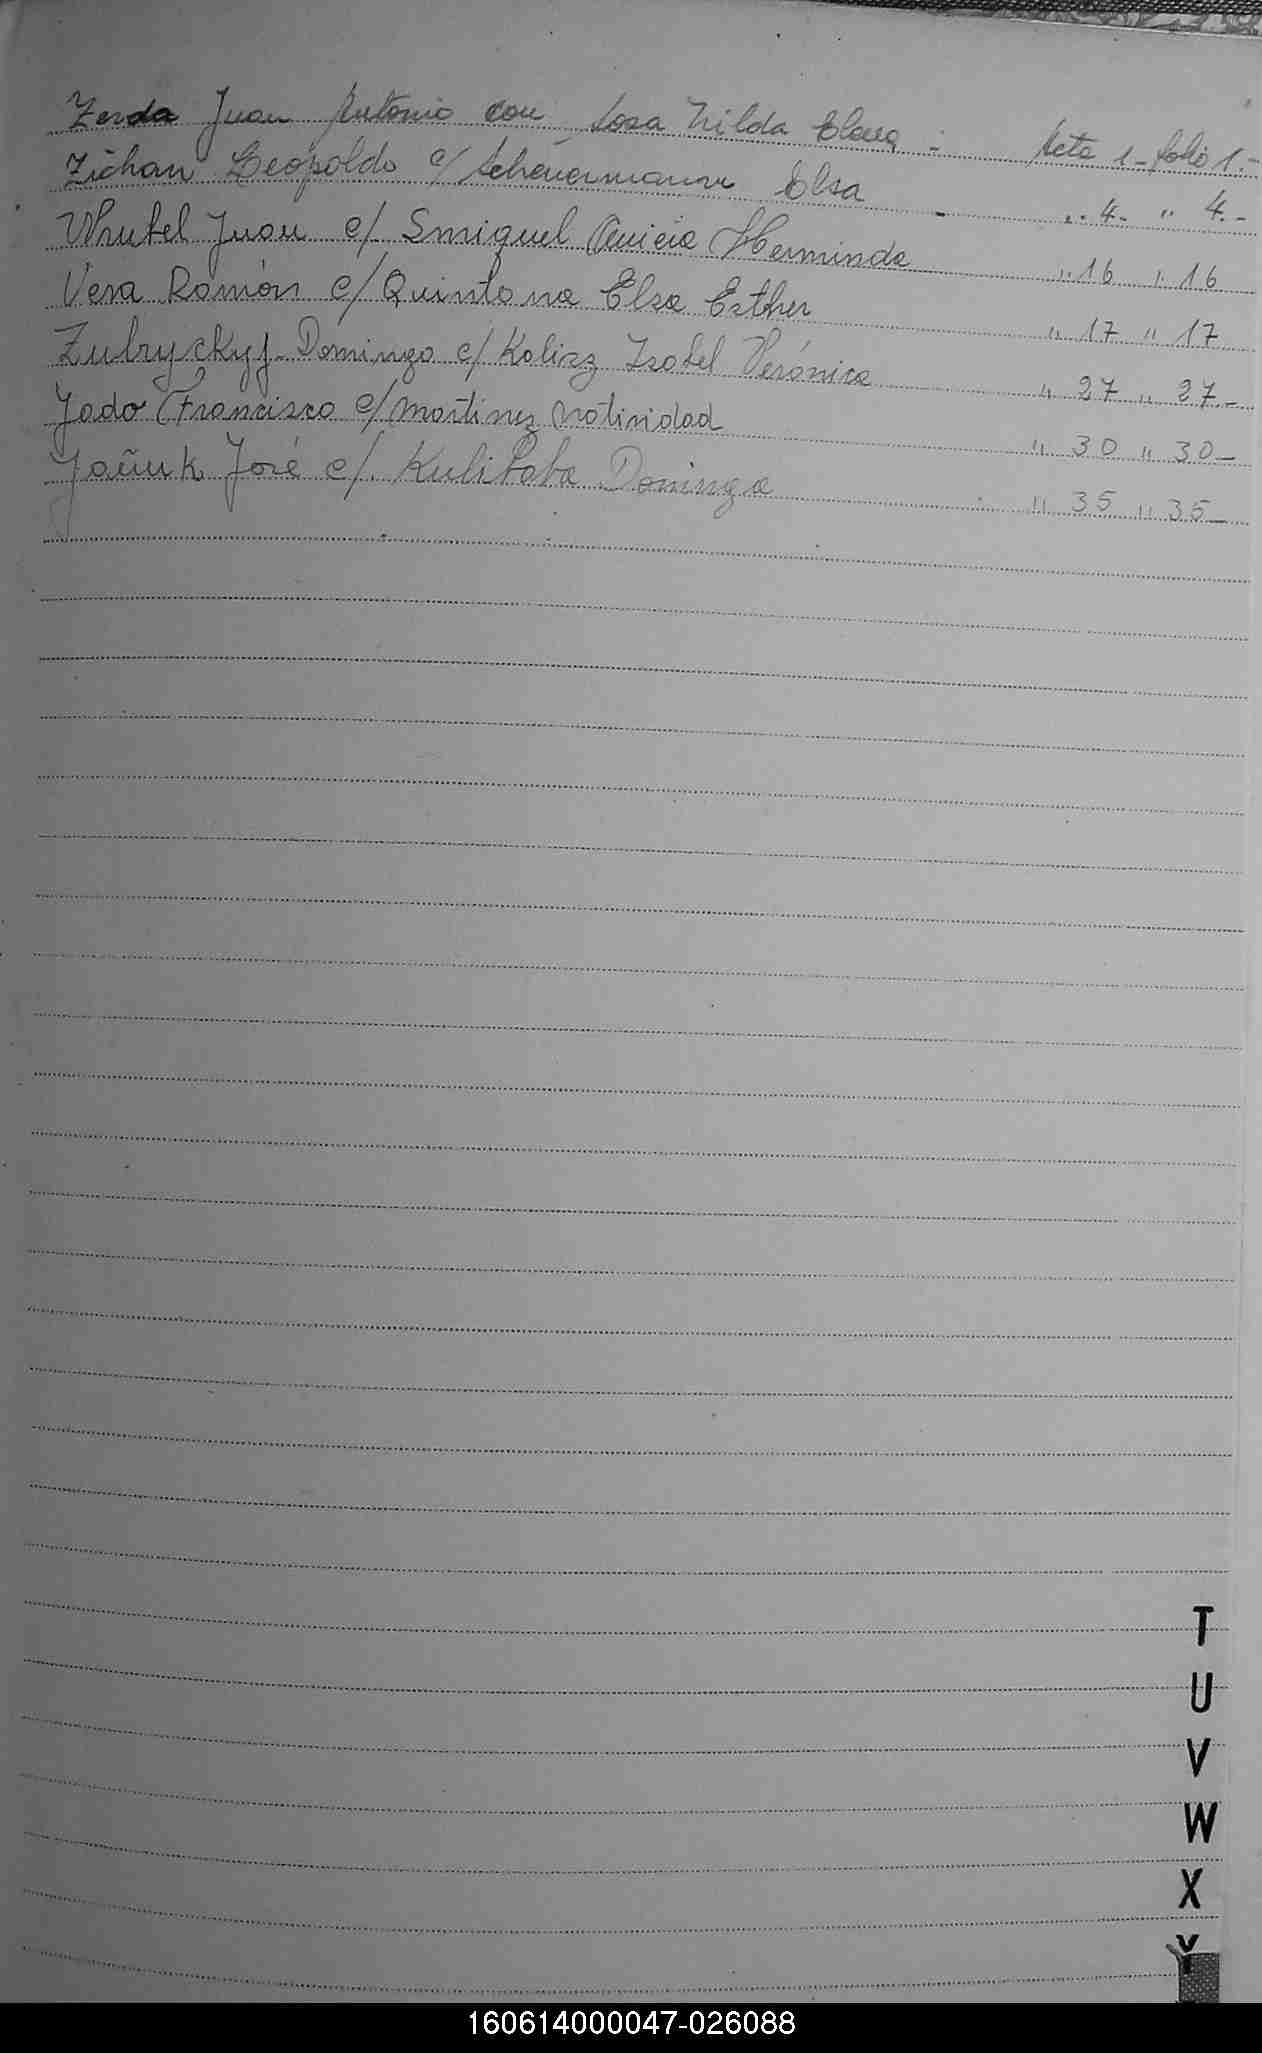 Zerda Juan Antonio con Sosa Nilda Elena - Acta 1 - folio 1.-
Zichan Leopoldo c/ Scheuermann Elsa - " 4.- " 4.-
Wrubel Juan c/ Smiguel Anicia Herminda " 16 " 16
Vera Ramón c/ Quintona Elsa Esther " 17 " 17
Zubryckyj Domingo c/ Isabel Verónica " 27 " 27-
Jado Francisco c/ Martinez Natividad " 30 " 30-
José c/. Dominga " 35 " 35-
T
U
V
W
X
Y
160614000047-026088